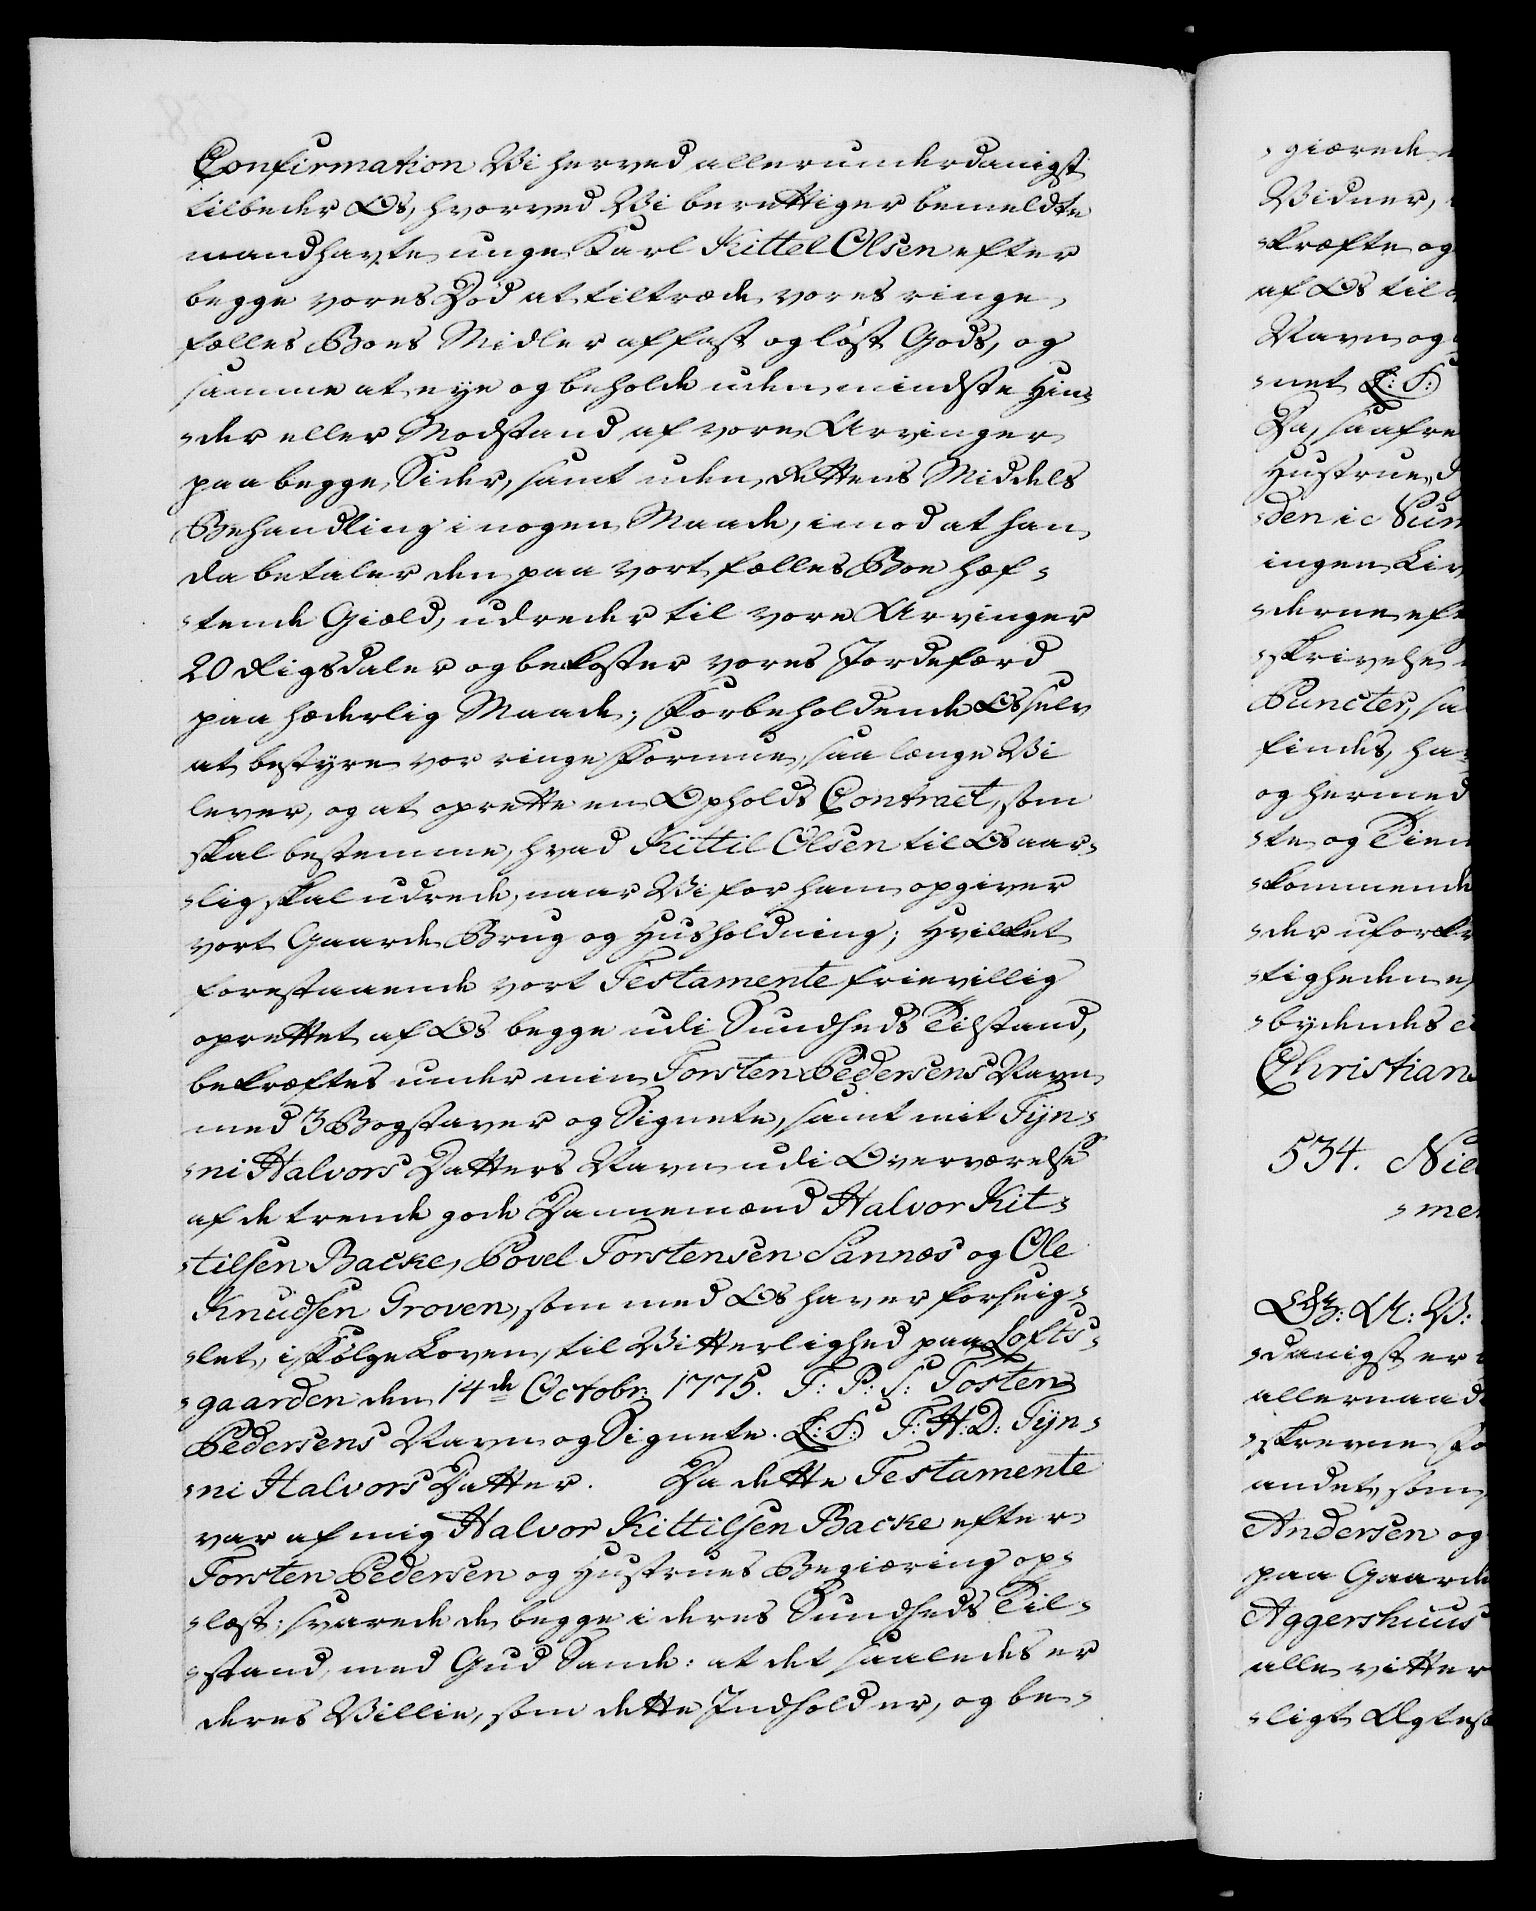 Confirmation Vi herved allerunderdanigst
tilbeder Os, hvorved Vi berettiger bemeldte
mandhavte unge Karl Kittel Olsen efter
begge vores Død at tiltræde vores ringe
fælles Boes Midler af fast og løst Gods, og
samme at eye og beholde uden mindste Hin-
-der eller Modstand af vore Arvinger
paa begge Sider, samt uden Rettens Middels
Behandling i nogen Maade, imod at han
da betaler den paa vort fælles Boe hæf-
-tende Giæld, udreder til vore Arvinger
20 Rigsdaler og bekoster vores Jordefærd
paa hæderlig Maade; Forbeholdende Os selv
at bestyre vor ringe Formue, saa længe Vi
lever, og at oprette en Opholds Contract, som
skal bestemme, hvad Kittil Olsen til Os aar-
-lig skal udrede, naar Vi for ham opgiver
vort Gaarde Brug og Huusholdning; Hvilket
forestaaende vort Testamente frievillig
oprettet af Os begge udi Sundheds Tilstand,
bekræftes under min Torsten Pedersens Navn
med 3 Bogstaver og Signete, samt mit Tyn-
-ni Halvors Datters Navn udi Overværelse
af de trende gode Dannemænd Halvor Kit-
-tilsen Backe, Povel Torstensen Sannæs og Ole
Knudsen Groven, som med Os haver forseig-
-let, i Følge Loven, til Vitterlighed paa Lofts-
-gaarden den 14de Octobr: 1775. T: P: S: Tosten
Pedersens Navn og Signete. L: S: T: H: D: Tyn-
-ni Halvors Datter. Da dette Testamente
var af mig Halvor Kittilsen Backe efter
Torsten Pedersen og Hustrues Begiæring op-
-læst; svarede de begge i deres Sundheds Til-
-stand, med Gud Sande: at det saaledes er
deres Villie, som dette Indholder, og be-
-giærede
Vidner,
-kræfte og
af Os til
Navn og
-net L: S:
Da, saafre
Hustrue, d
-den ic Sum
ingen Liv
-derne eft
-skrivelse
Puncter, sa
findes, ha-
og hermed
-te og Tien
-kommende
-der uforkr
-tigheden e
-bydendes
Christian
534. Niel
-me
Gr: A: V:
-danigst er
allernaad
-skrevne Fo
andet, som
Andersen og
paa Gaarde
Aggershuus
alle vitter
-ligt Ægtes